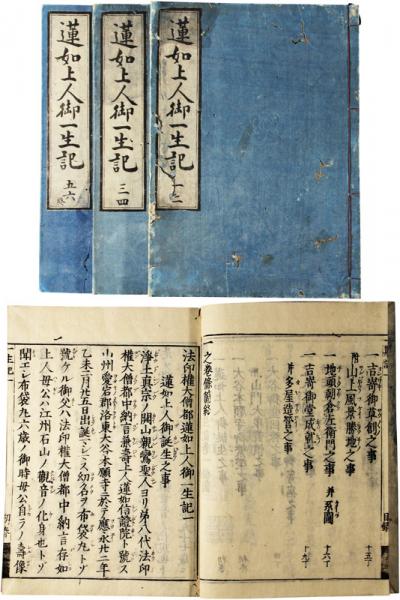 蓮如上人御一生記 一二
蓮如上人御一生記 三四
蓮如上人御一生記 五六終
目録
一吉崎御草創之事 十五丁
附山上風景勝地之事
一地頭朝倉左衛門之事 并系圖 十六丁
一吉崎御堂成就之事 十九丁
并多屋造營之事
一之卷條箇終
法印權大僧都蓮如上人御一生記一
蓮如上人御誕生之事
淨土真宗ノ開山親鸞聖人ヨリ第八代法印
權大僧都中納言兼壽上人蓮如信證院ト號ス
山州愛宕郡洛東大谷本願寺ニ於テ應永廿二年
乙未二月廿五日出誕 幼名ヲ布袋丸トゾ
號ケル御父ハ法印權大僧都中納言存如
上人母公ハ江州石山ノ觀音ノ化身也トゾ
聞エシ布袋丸六歳ノ御時母公自ラノ壽像
一生記一